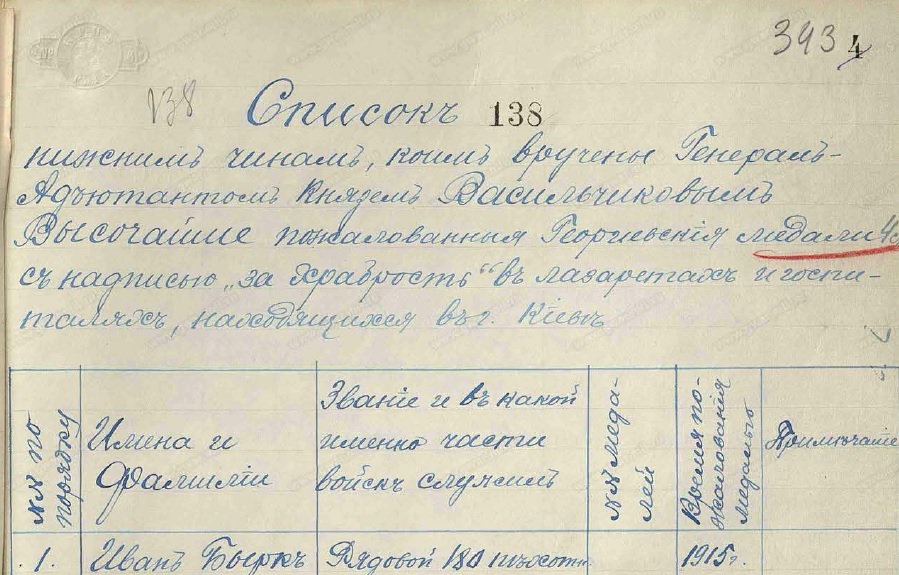 393 4
138
Списокъ 138
нижнимъ чинамъ, коимъ вручены Генералъ-
Адъютантомъ Княземъ Васильчиковымъ
Высочайше пожалованныя Георгиевскія медали 4
съ надписью „за храбрость“ въ лазаретахъ и госпи-
таляхъ, находящихся въ г. Кіевѣ
№№ по порядку
Имена и
фамиліи
Званіе и въ какой
именно части
войскъ служилъ
№№ меда-
лей
Время по-
жалованія
медалью
Примѣчаніе
1. Иванъ Быркъ Рядовой 180 пѣхотн. 1915 г.